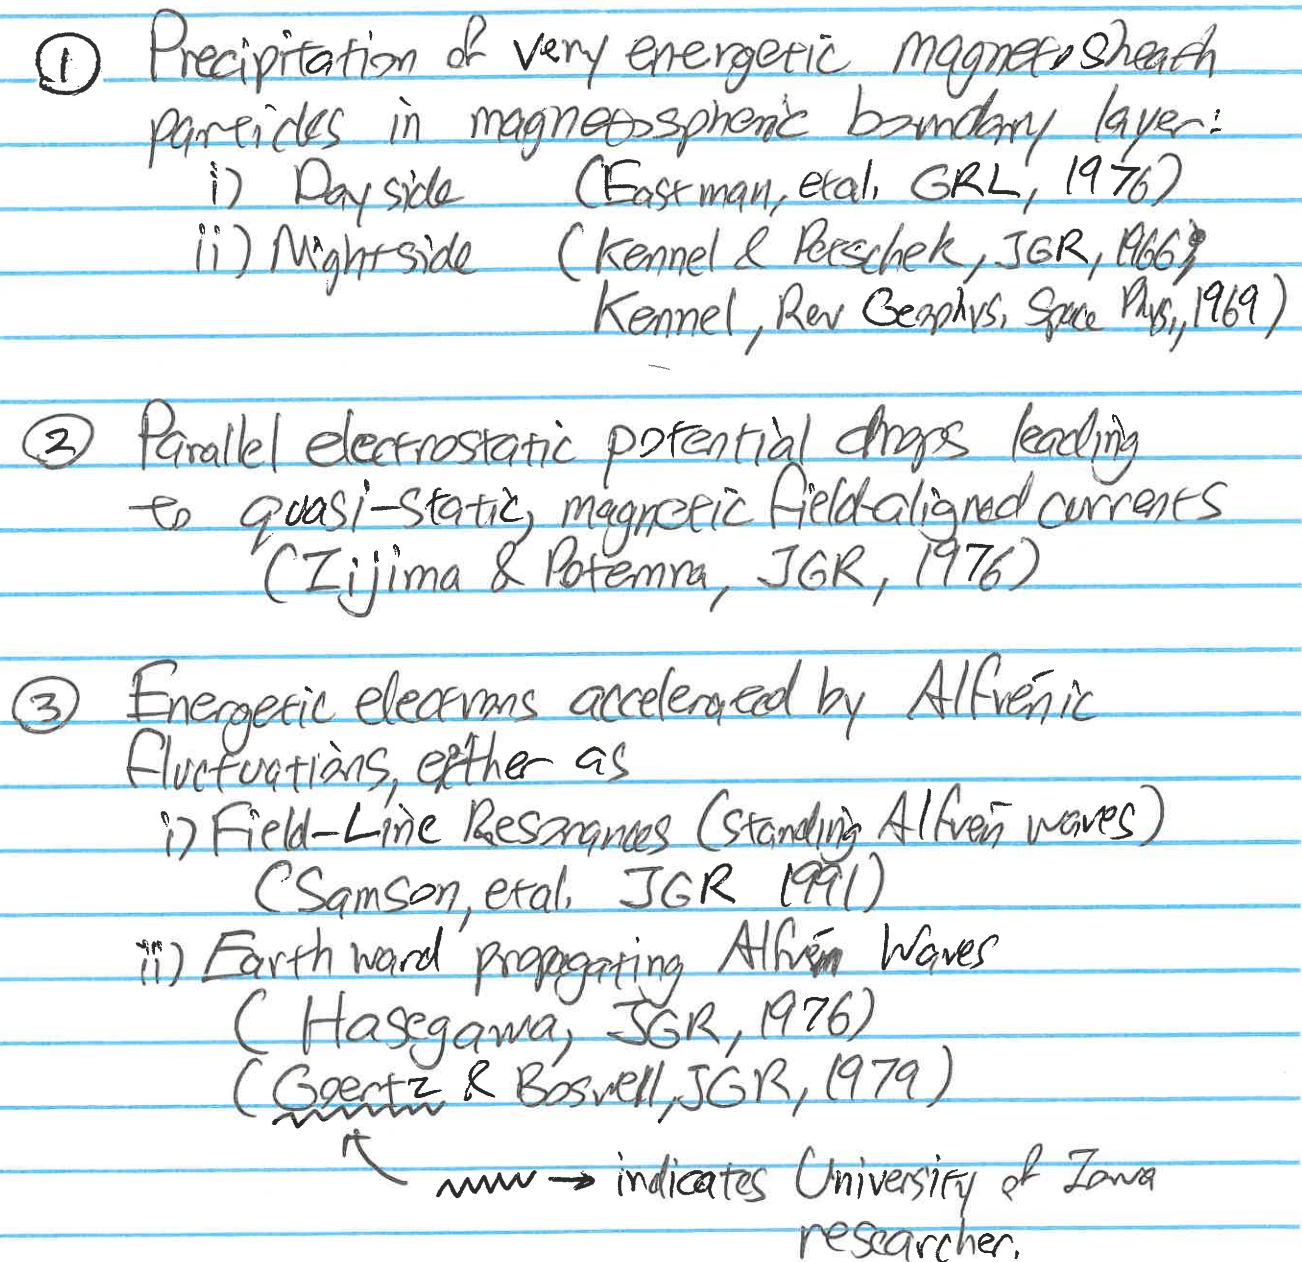 ① Precipitation of very energetic magnetosheath
particles in magnetospheric boundary layer:
i) Dayside (Eastman, etal. GRL, 1976)
ii) Nightside (Kennel & Petschek, JGR, 1966;
Kennel, Rev Geophys. Space Phys., 1969)
② Parallel electrostatic potential drops leading
to quasi-static, magnetic field-aligned currents
(Iijima & Potemra, JGR, 1976)
③ Energetic electrons accelerated by Alfvénic
fluctuations, either as
i) Field-Line Resonances (standing Alfvén waves)
(Samson, etal. JGR 1991)
ii) Earthward propagating Alfvén Waves
(Hasegawa, JGR, 1976)
(Goertz & Boswell, JGR, 1979)
→ indicates University of Iowa
researcher.